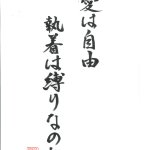 愛は自由
執着は縛りなの